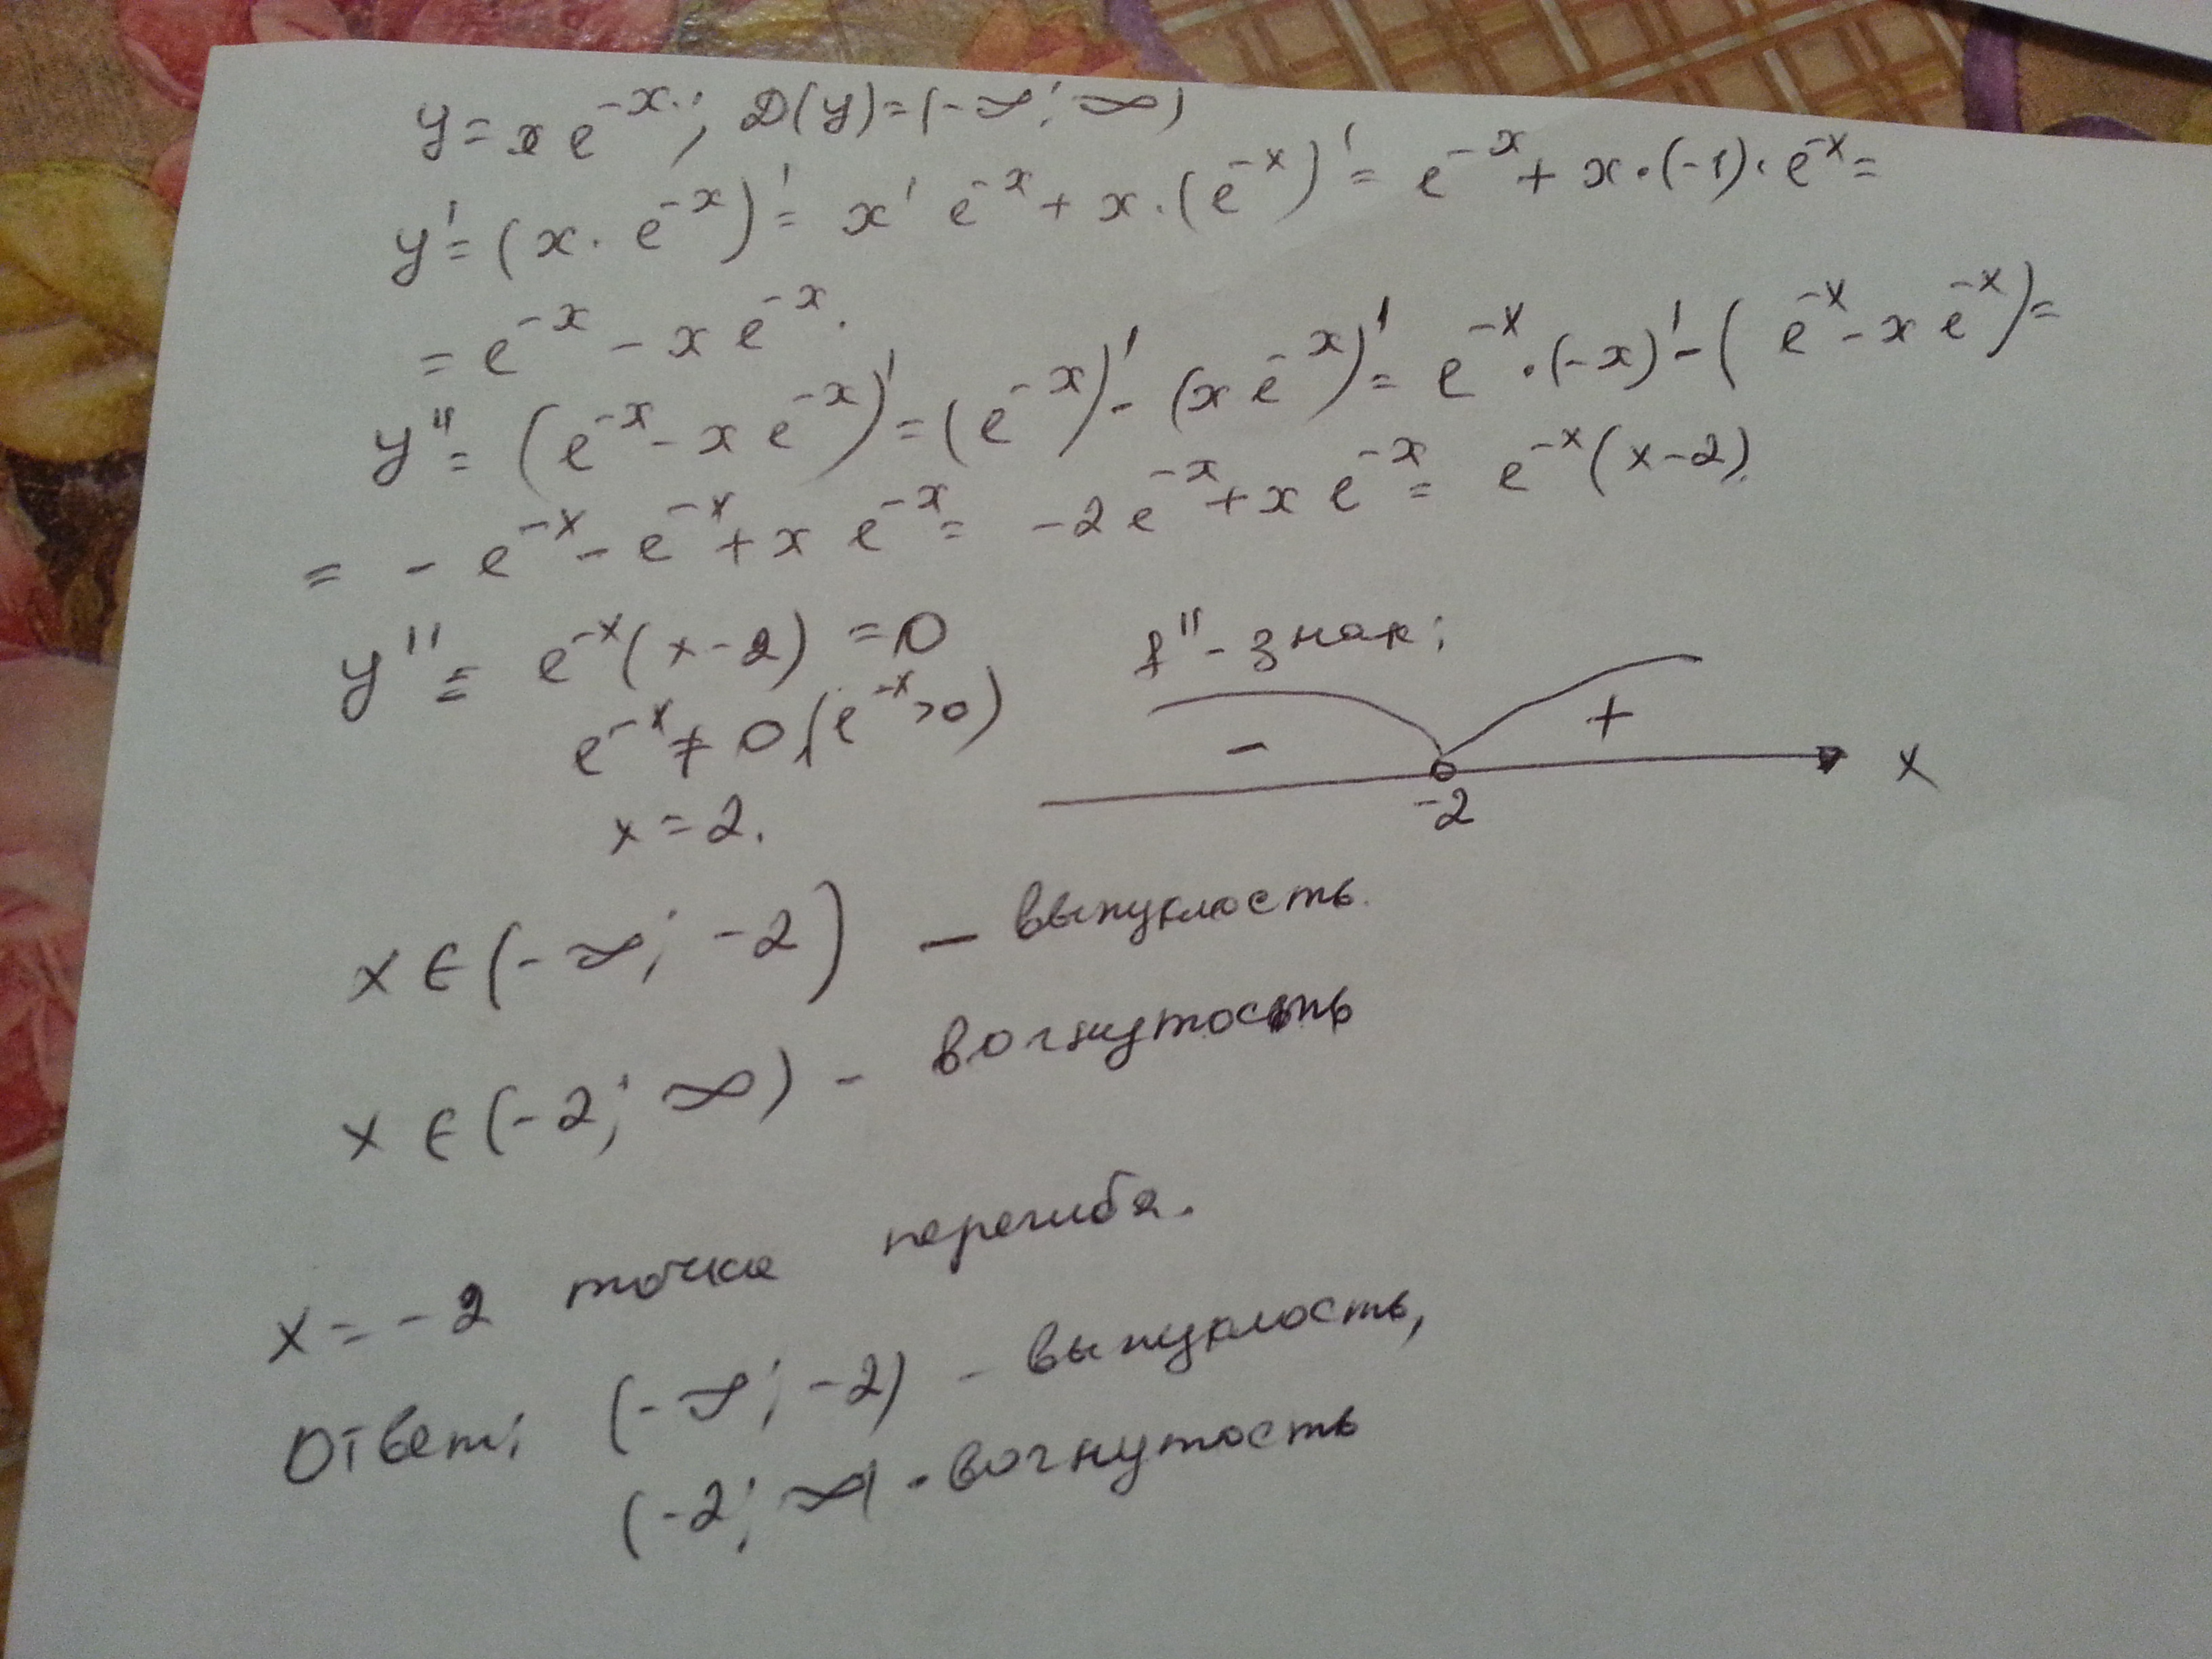 y = x e^{-x}; D(y) = (-∞; ∞)
y' = (x · e^{-x})' = x' e^{-x} + x · (e^{-x})' = e^{-x} + x · (-1) · e^{-x} =
= e^{-x} - x e^{-x}.
y'' = (e^{-x} - x e^{-x})' = (e^{-x})' - (x e^{-x})' = e^{-x} · (-x)' - (e^{-x} - x e^{-x}) =
= - e^{-x} - e^{-x} + x e^{-x} = -2 e^{-x} + x e^{-x} = e^{-x} (x-2).
y'' = e^{-x} (x-2) = 0
e^{-x} ≠ 0, (e^{-x} > 0)
x = 2.
f'' - знак:
- +
-2 x
x ∈ (-∞; -2) — выпуклость.
x ∈ (-2; ∞) - вогнутость
x = -2 точка перегиба.
Ответ: (-∞; -2) - выпуклость,
(-2; ∞) - вогнутость